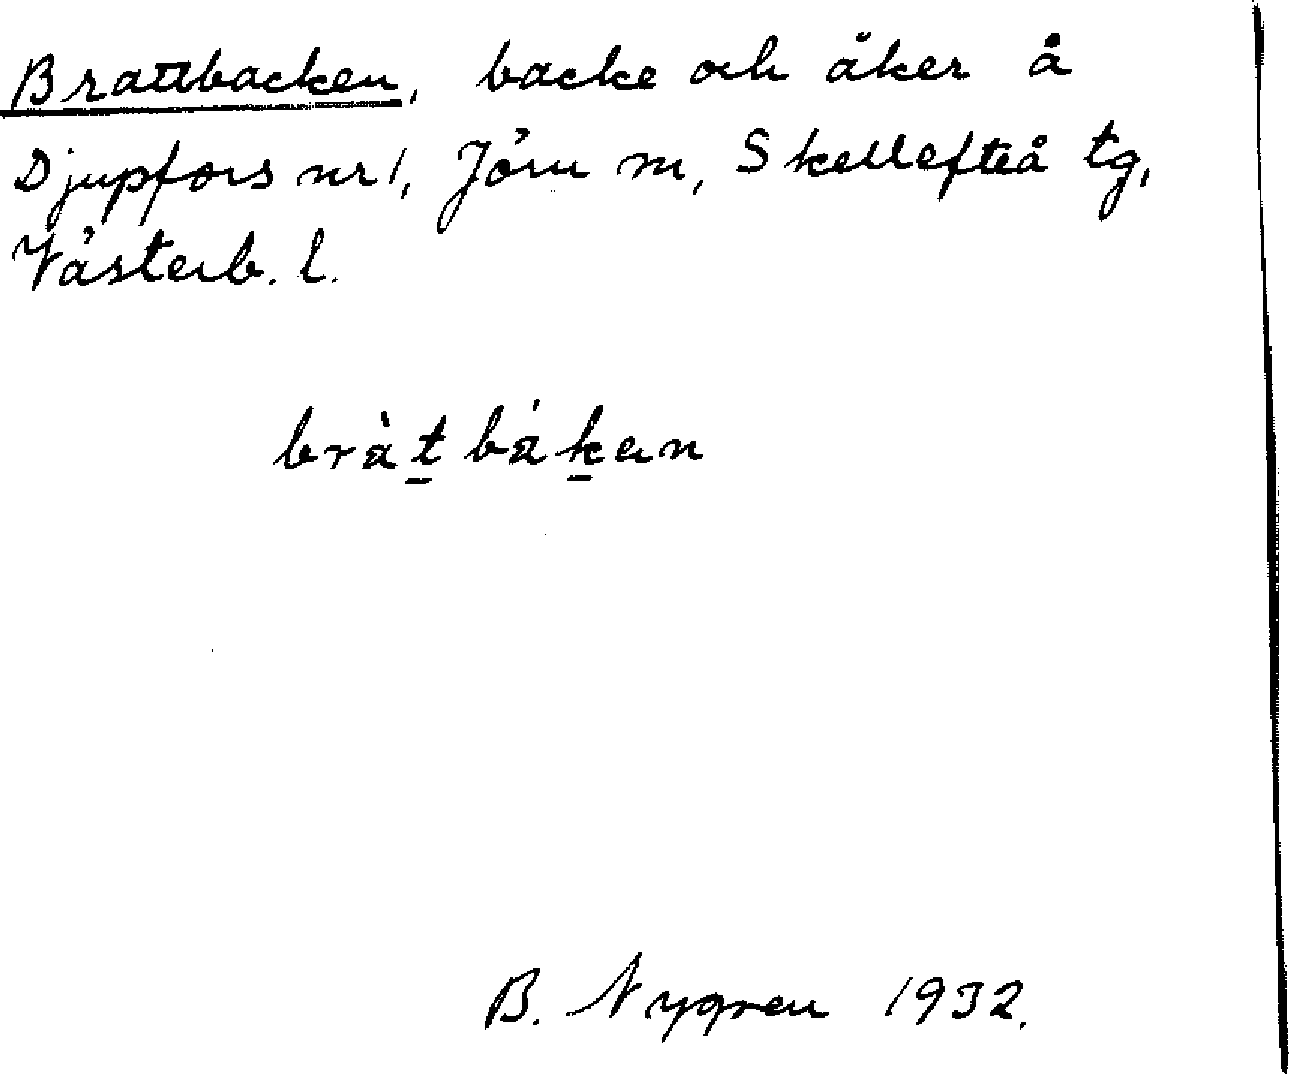 Brattbacken, backe och åker å
Djupfors nr 1, Jörn m, Skellefteå tg,
Västerb. l.
bràt̲ bák̲en
B. Nygren 1932.